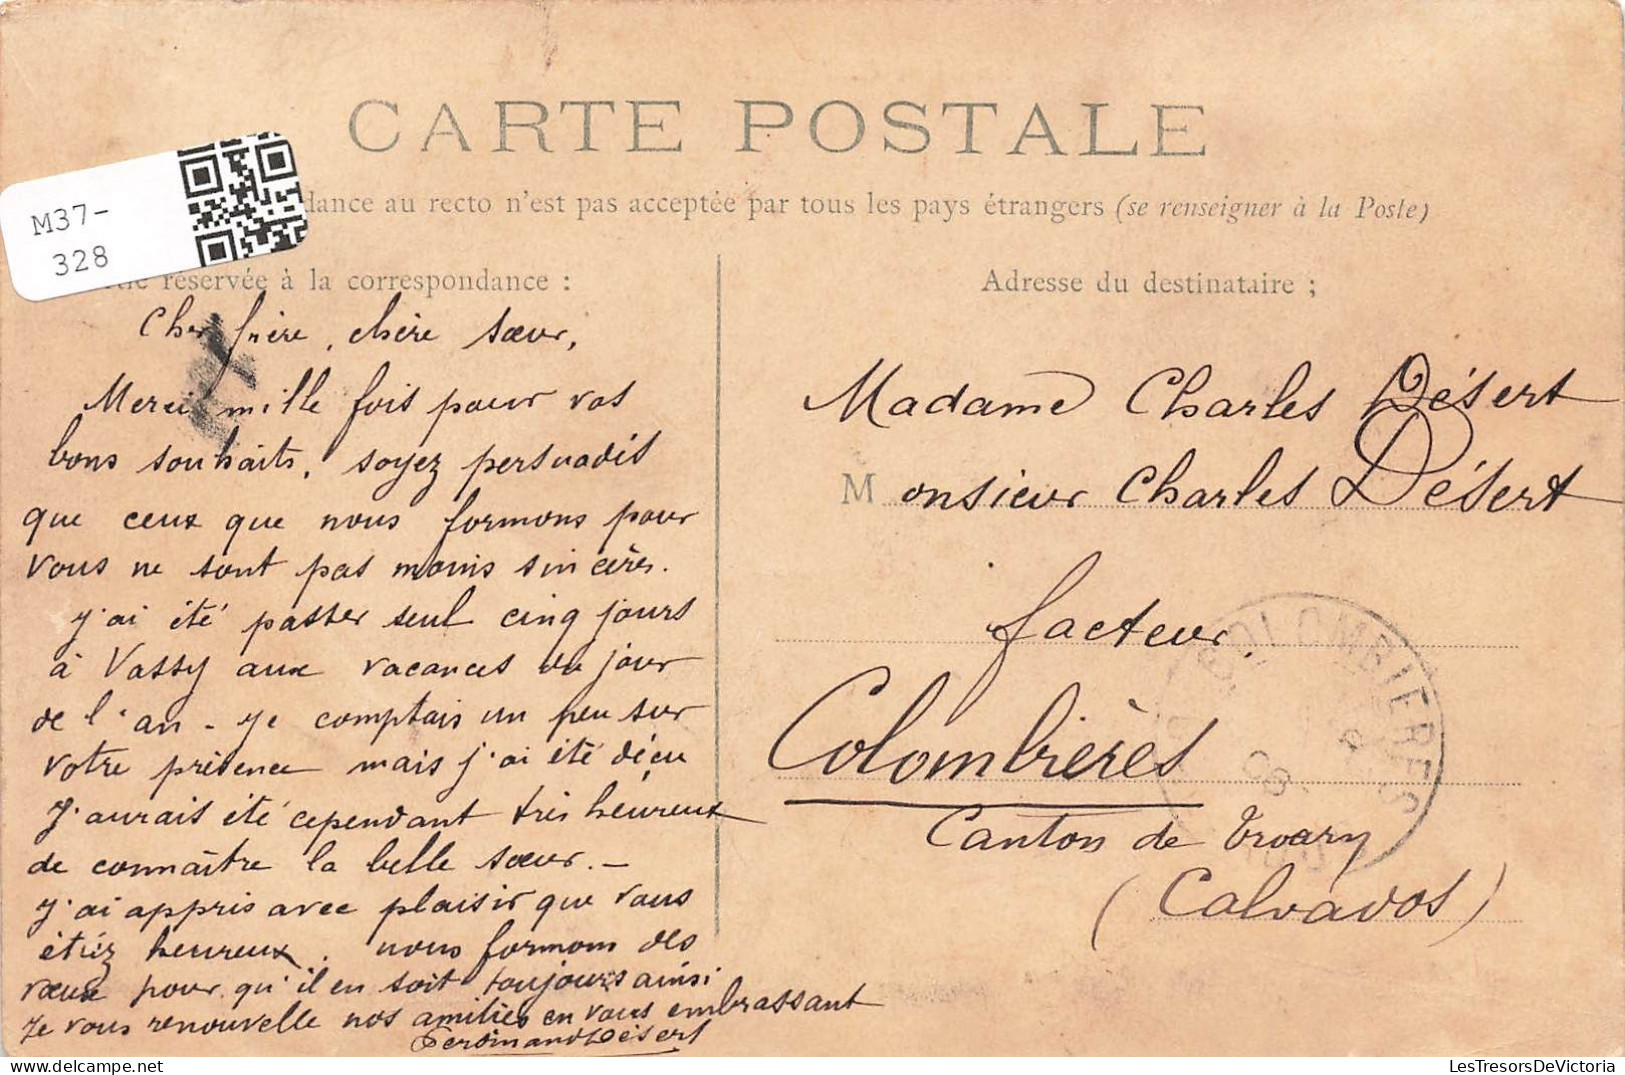 CARTE POSTALE
M37-
328
dance au recto n'est pas acceptée par tous les pays étrangers (se renseigner à la Poste)
réservée à la correspondance :
Cher frère, chère sœur,
Merci mille fois pour vos
bons souhaits, soyez persuadés
que ceux que nous formons pour
vous ne sont pas moins sincères.
J'ai été passer seul cinq jours
à Vassy aux vacances du jour
de l'an - Je comptais un peu sur
votre présence mais j'ai été déçu
J'aurais été cependant très heureux
de connaître la belle sœur. -
J'ai appris avec plaisir que vous
étiez heureux. nous formons des
vœux pour qu'il en soit toujours ainsi
Je vous renouvelle nos amitiés en vous embrassant
Ferdinand Désert
Adresse du destinataire ;
Madame Charles Désert
Monsieur Charles Désert
facteur
Colombières
Canton de Troarn
(Calvados)
COLOMBIERES
LesTresorsDeVictoria